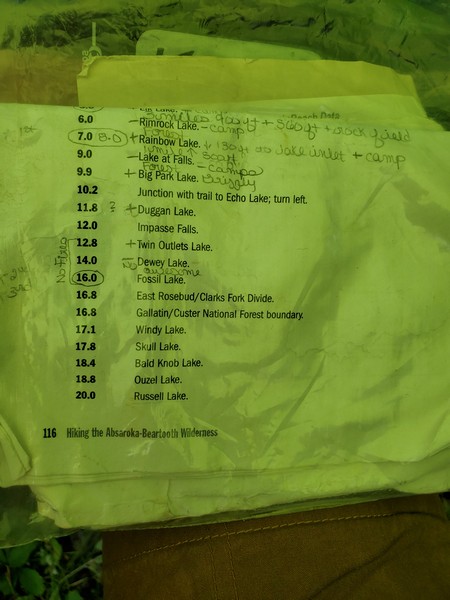 6.0 – Rimrock Lake. – camp
7.0 8.0 + Rainbow Lake.
9.0 – Lake at Falls. – camp
9.9 + Big Park Lake.
10.2 Junction with trail to Echo Lake; turn left.
11.8 ? + Duggan Lake.
12.0 Impasse Falls.
12.8 + Twin Outlets Lake.
No Fires
14.0 No Dewey Lake.
awesome
16.0 Fossil Lake.
16.8 East Rosebud/Clarks Fork Divide.
16.8 Gallatin/Custer National Forest boundary.
17.1 Windy Lake.
17.8 Skull Lake.
18.4 Bald Knob Lake.
18.8 Ouzel Lake.
20.0 Russell Lake.
116 Hiking the Absaroka-Beartooth Wilderness